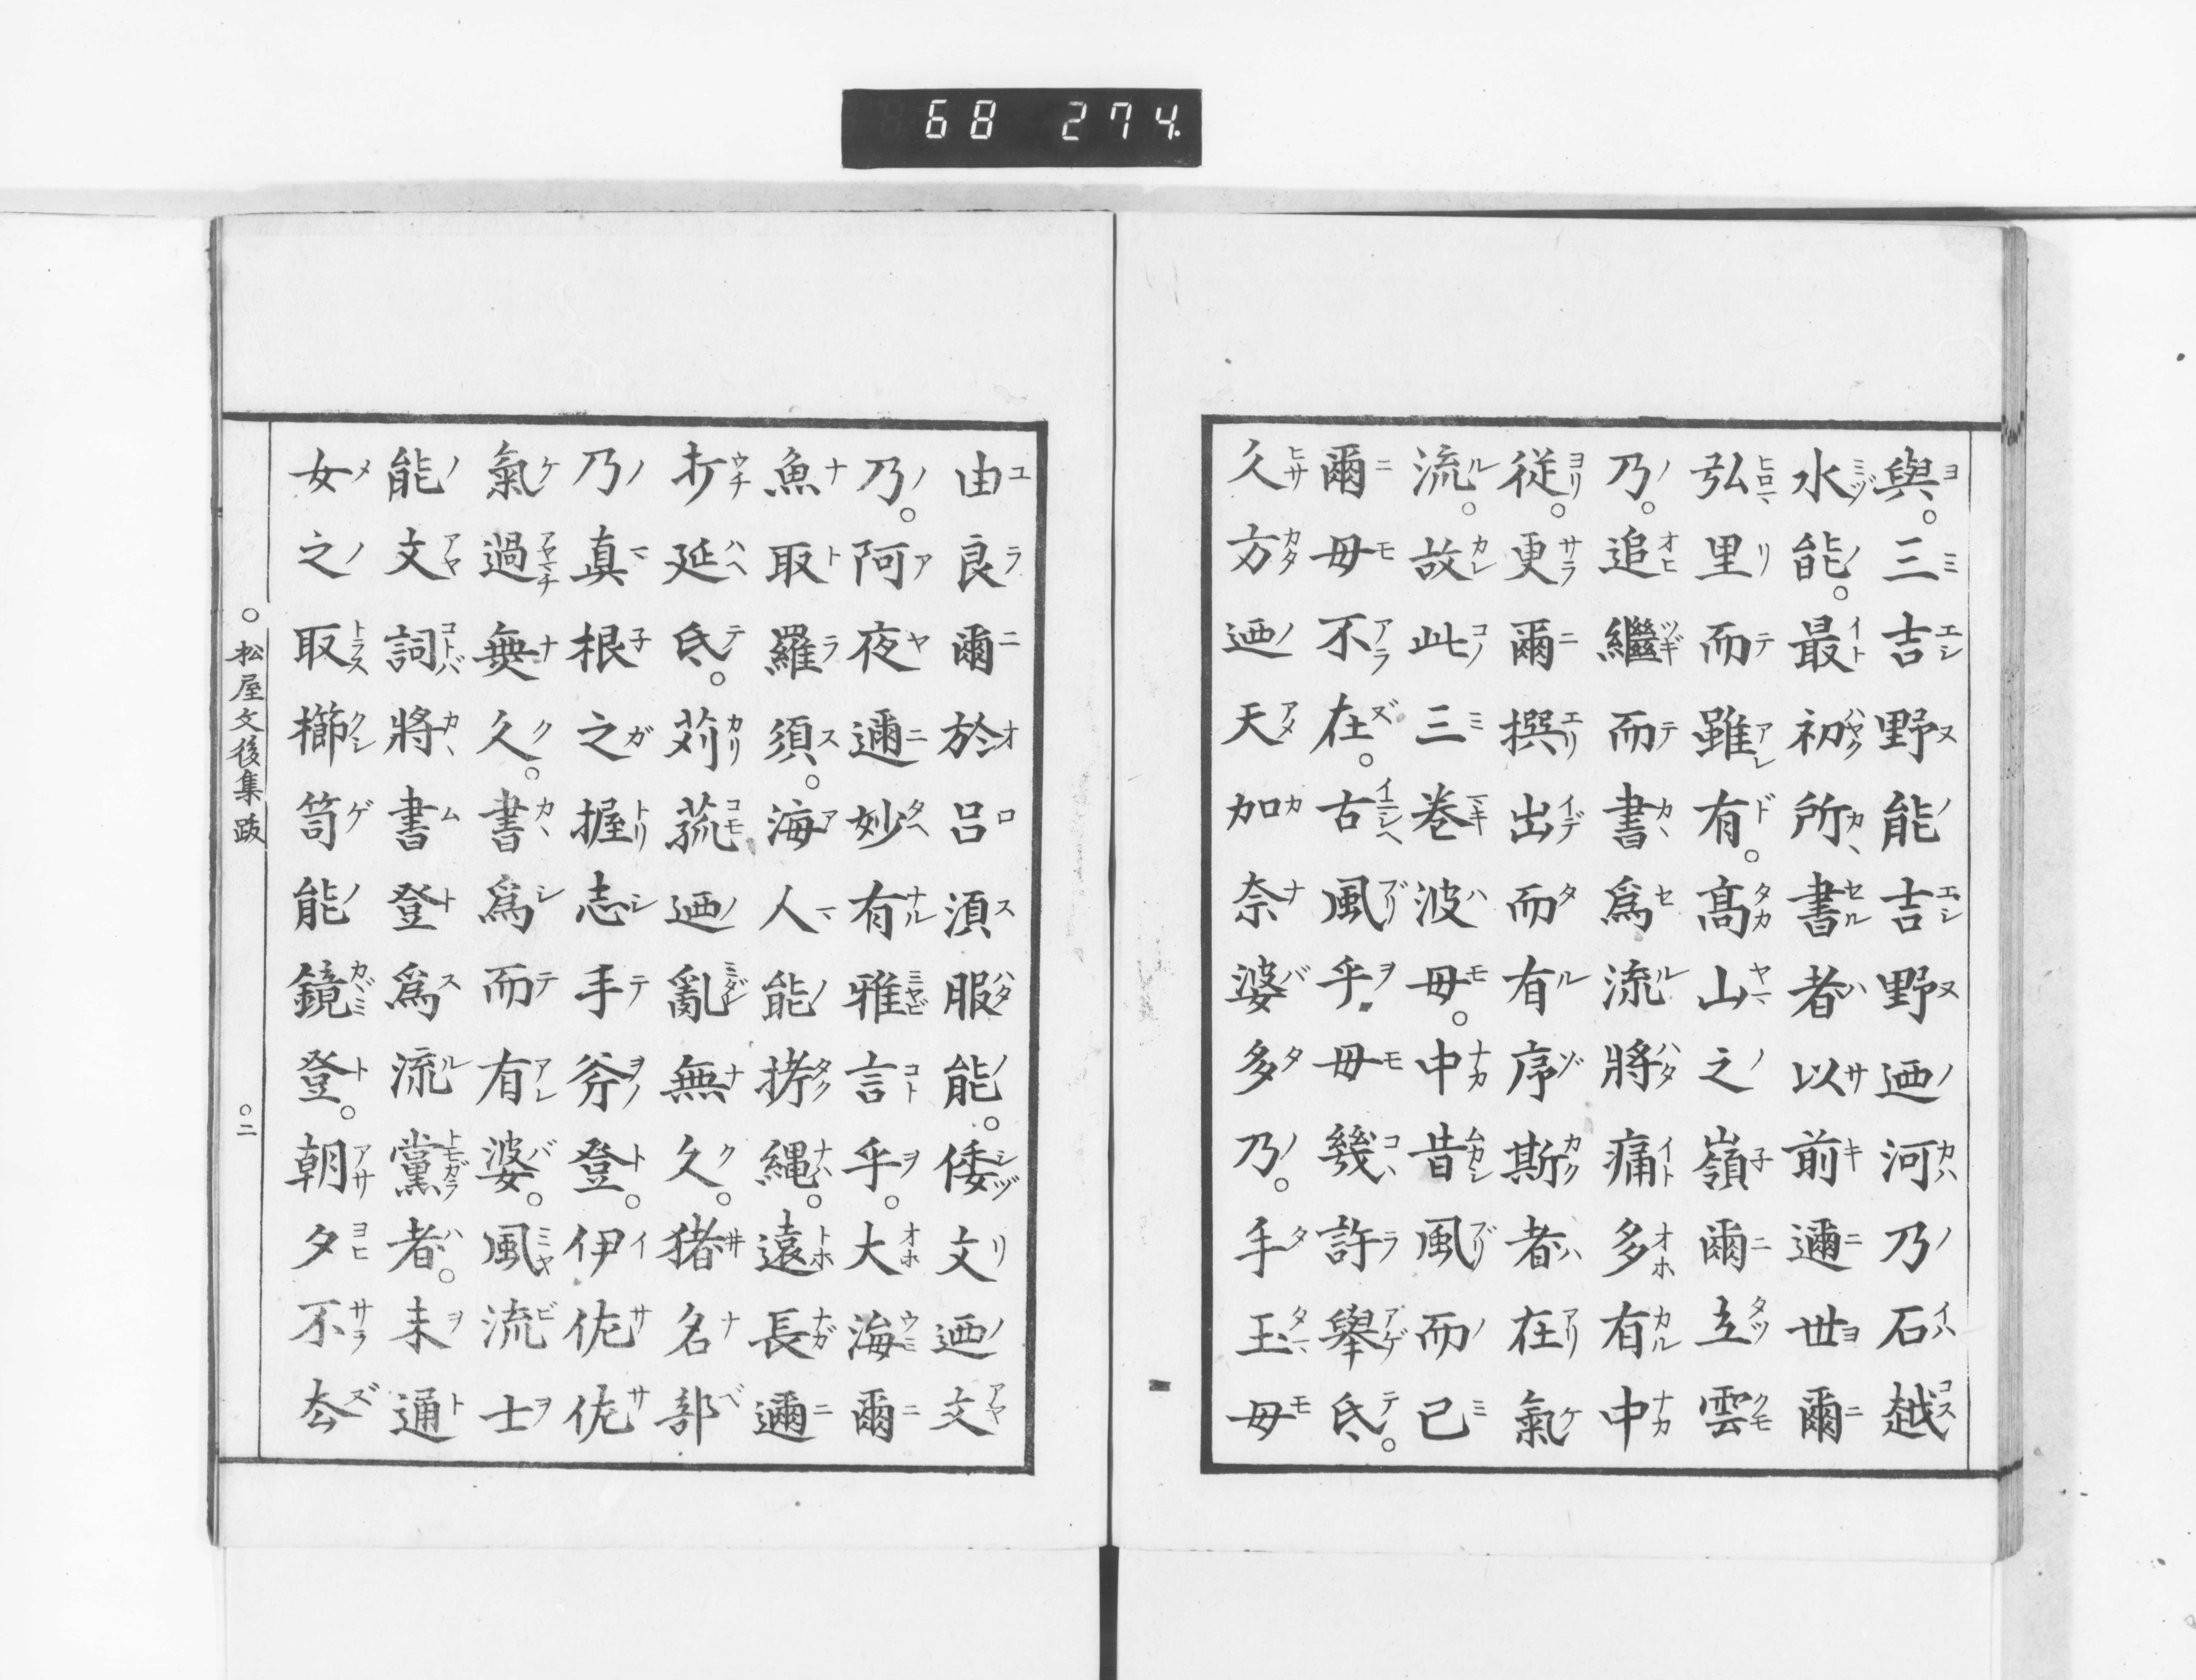 68 274.
與。三吉野能吉野迺河乃石越
水能。最初所書者以前邇世爾
弘里而雖有。髙山之嶺爾立雲
乃。追繼而書爲流將痛多有中
従。更爾撰出而有序斯者在氣
流。故此三巻波毋。中昔風而己
爾毋不在。古風乎毋幾許舉氐。
久方迺天加奈婆多乃。手玉毋
由良爾於呂湏服能。倭文迺文
乃。阿夜邇妙有雅言乎。大海爾
魚取羅須。海人能栲縄。遠長邇
打延氐。苅菰迺亂無久。猪名部
乃真根之握志手斧登。伊佐佐
氣過無久。書爲而有婆。風流士
能文詞將書登爲流黨者。未通
女之取櫛笥能鏡登。朝夕不厺
○松屋文後集跋 ○二